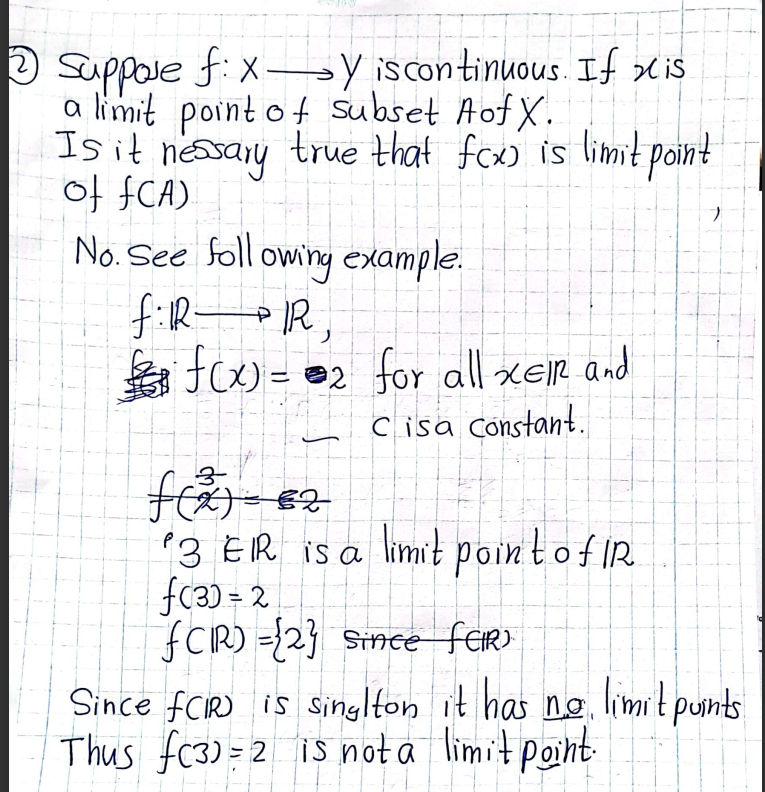 ② Suppose f: X ⟶ Y is continuous. If x is
a limit point of subset A of X.
Is it nessary true that f(x) is limit point
of f(A)
No. See following example.
f: ℝ ⟶ ℝ,
f(x) = 2 for all x∈ℝ and
c is a constant.
f(3) = 2
3 ∈ ℝ is a limit point of ℝ
f(3) = 2
f(ℝ) = {2} since f(ℝ)
Since f(ℝ) is singlton it has no limit points
Thus f(3) = 2 is not a limit point.